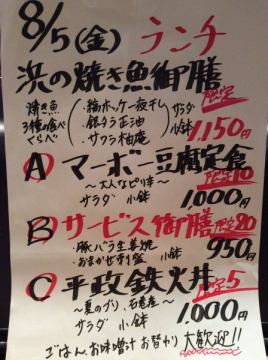 8/5(金) ランチ
浜の焼き魚御膳
限定
焼き魚
3種の食べ
くらべ
・縞ホッケ一夜干し
・銀ダラ正油
・サワラ柚庵
サラダ
小鉢
1,150円
A マーボー豆腐定食
限定10
〜大人なピリ辛〜
サラダ 小鉢 1,000円
B サービス御膳
限定20
・豚バラ生姜焼
・おまかせ刺盛
サラダ 小鉢 950円
C 平政鉄火丼
限定5
〜夏のブリ、石巻産〜
サラダ 小鉢 1,000円
ごはん、お味噌汁 お替わり 大歓迎!!